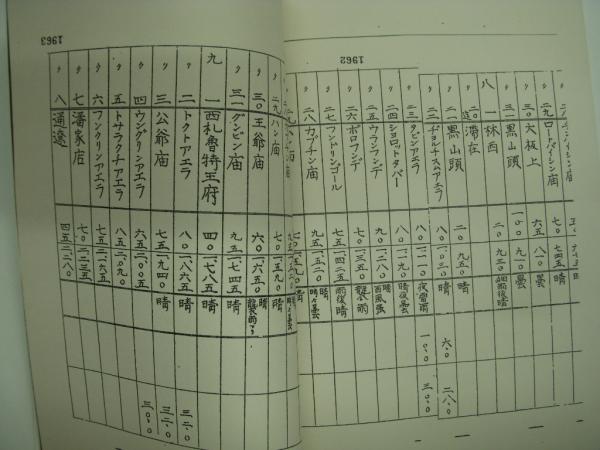 1962
〃 二九 ロートパイシン廟 七〇 七四五 晴
〃 三〇 大板上 六五 八一〇 曇
〃 三一 黒山頭 一〇〇 九一〇 曇
八 一 林西 二〇 九三〇 細雨後晴
〃 二〇迄 滞在
〃 二一 黒山頭 二〇 九五〇 晴
〃 二二 八〇 一〇三〇 晴 六.〇 二八.〇
〃 二三 タビンアエラ 八〇 一一一〇 夜雷雨 一〇.〇 三〇.〇
〃 二四 ショロットタバー 八〇 一一九〇 晴夜曇
〃 二五 ウランフンデ 九〇 一二八〇 晴西風強
〃 二六 ボロフンデ 七〇 一三五〇 曇小雨
〃 二七 フンドリンゴール 七五 一四二五 雨後晴
〃 二八 カプチン廟 九五 一五二〇 晴々曇
1963
〃 二九 ハン廟 七〇 一五九〇 晴
〃 三〇 王爺廟 六〇 一六五〇 晴
〃 三一 グンビン廟 九五 一七四五 晴
九 一 西札魯特王府 四〇 一七八五 晴
〃 二 トクトアエラ 八〇 一八六五 晴 三〇.〇
〃 三 公爺廟 七五 一九四〇 晴 三二.〇
〃 四 ウングリンアエラ 六五 二〇〇五 三〇.〇
〃 五 トサラクチアエラ 八五 二〇九〇
〃 六 フンクリンアエラ 七五 二一六五
〃 七 潘家店 七〇 二二三五
〃 八 通遼 四五 二二八〇